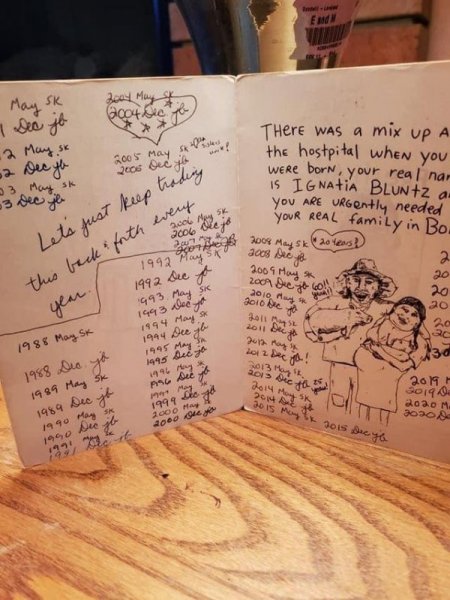 E and M
May SK
Dec jb
2 May SK
Dec jb
3 May SK
3 Dec jb
2004 May SK
2004 Dec jb
2005 May SK
2005 Dec jb
Let's just keep trading
this back & forth every
year.
2006 May SK
2006 Dec jb
1988 May SK
1988 Dec jb
1989 May SK
1989 Dec jb
1990 May SK
1990 Dec jb
1991 May SK
1991 Dec jb
1992 May SK
1992 Dec jb
1993 May SK
1993 Dec jb
1994 May SK
1994 Dec jb
1995 May SK
1995 Dec jb
1996 May SK
1996 Dec jb
1999 Dec jb
2000 May SK
2000 Dec jb
THERE WAS A mix UP A
the hostpital WHEN YOU
WERE BORN, YOUR REAL NA
IS IGNATIA BLUNTZ
YOU ARE URGENTLY NEEDED
YOUR REAL family in Bo
2008 May SK
2008 Dec jb
20 years?
2009 May SK
2009 Dec jb
2010 May SK
2010 Dec jb
2011 May SK
2011 Dec jb
2012 May SK
2012 Dec jb!
2013 May SK
2013 Dec jb
2014 May SK
2014 Dec jb
2015 May SK
2015 Dec jb
2019
2019 D
2020 M
2020 D